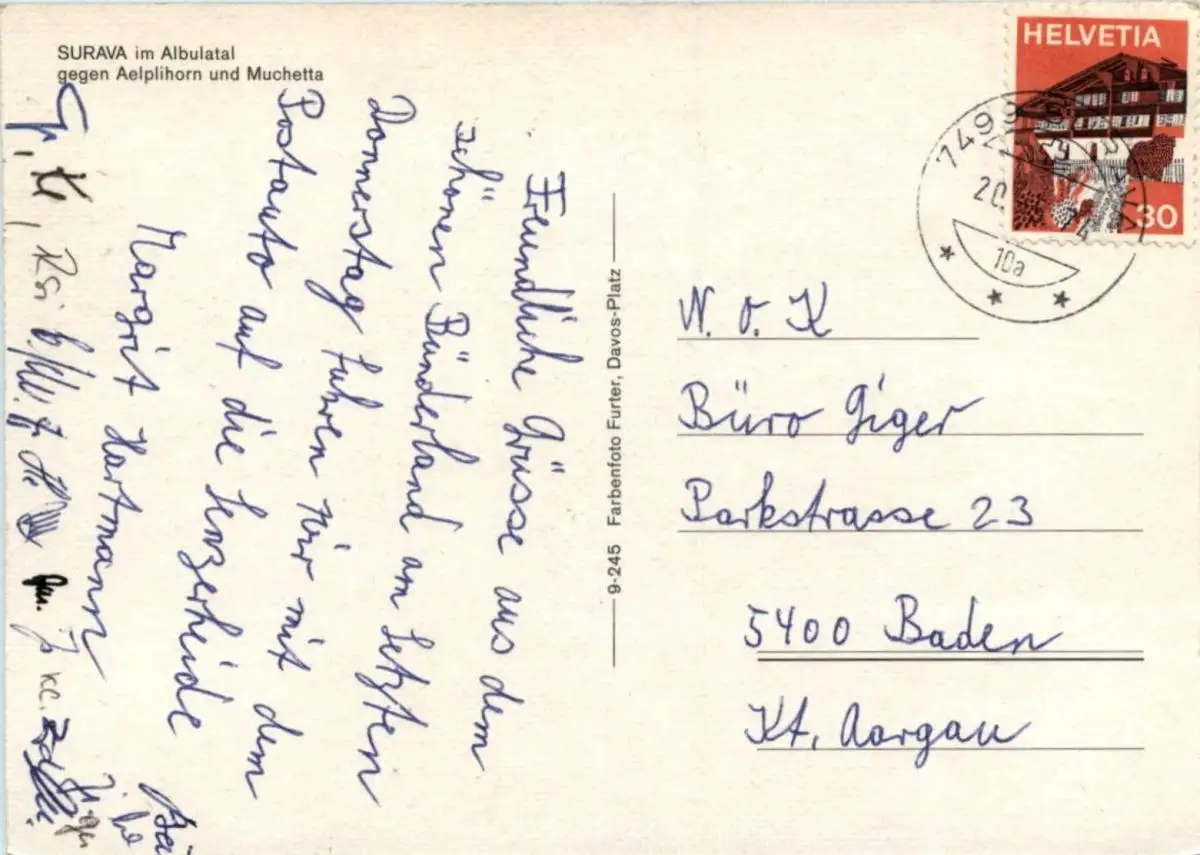 SURAVA im Albulatal
gegen Aelplihorn und Muchetta
Freundliche Grüsse aus dem
schönen Bünderland am letzten
Donnerstag fuhren wir mit dem
Postauto auf die Lenzerheide
Margrit Hartmann
9-245 Farbenfoto Furter, Davos-Platz
HELVETIA
30
7493
20.
74
10a
N. o. K
Büro Giger
Parkstrasse 23
5400 Baden
Kt. Aargau